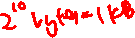 2^10 bytes = 1 KB